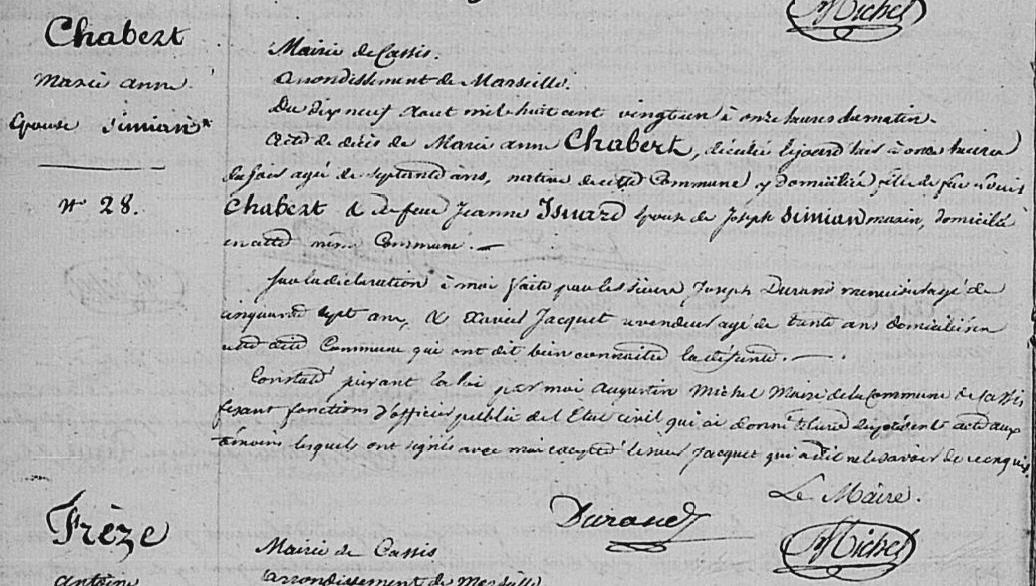 Michel
Chabert
Marie anne
Epouse Simian
N° 28.
Mairie de Cassis.
arrondissement de Marseille.
Du dix neuf aout mil huit cent vingt un à onze heures du matin.
Acte de décès de Marie anne Chabert, décédée le jourd'hui à onze heures
du soir agée de septante ans, native de cette Commune y domiciliée, fille de feu Louis
Chabert & de feue Jeanne Isuard Epouse de Joseph Simian marin, domicilié
en cette même Commune.
sur la déclaration à moi faite par les sieurs Joseph Durand menuisier agé de
cinquante sept ans, & Xavier Jacquet revendeur agé de trente ans domiciliés en
cette dite Commune qui ont dit bien connaitre la défunte.
Constaté suivant la loi par moi Augustin Michel Maire de la Commune de Cassis
fesant fonctions d'officier public de l'Etat civil qui ai donné lecture du présent acte aux
témoins lesquels ont signés avec moi excepté le sieur Jacquet qui a dit ne le savoir de ce requis.
Le Maire.
Durand
Michel
Frèze
antoine
Mairie de Cassis
arrondissement de Marseille